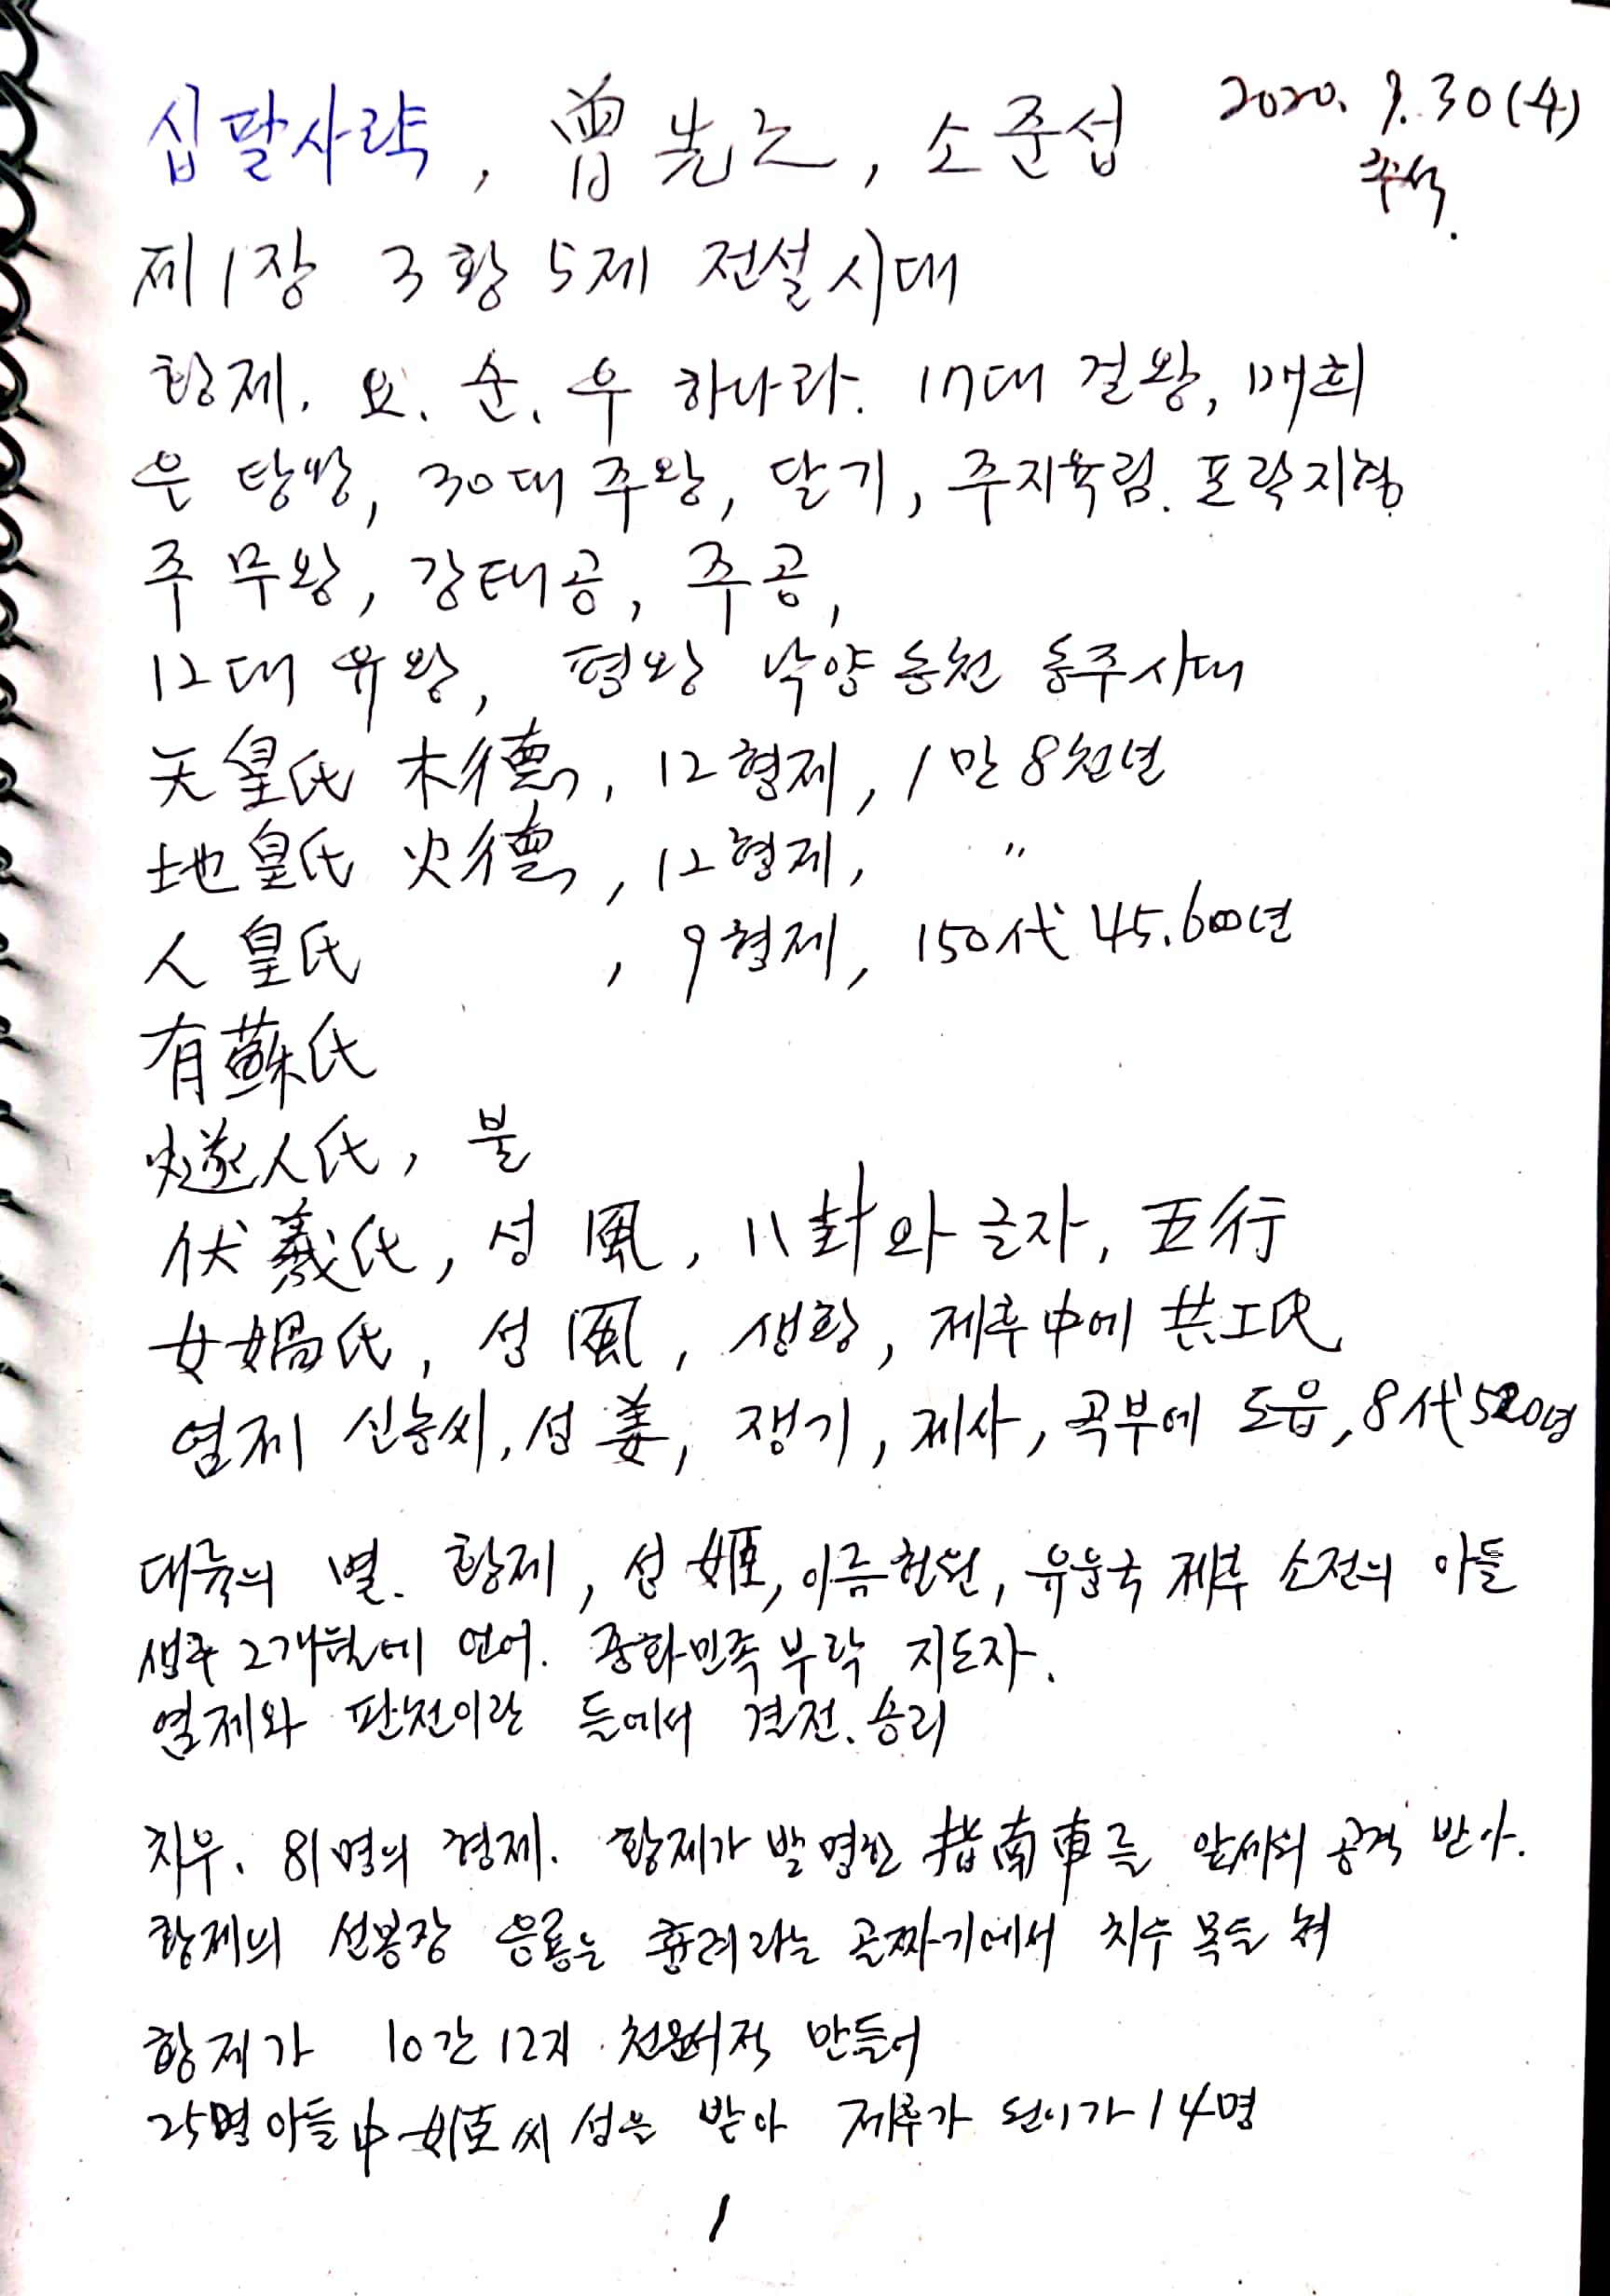 십팔사략, 曾先之, 소준섭 2020. 9. 30(수)
추석.
제1장 3황5제 전설시대
황제. 요. 순. 우 하나라. 17대 걸왕, 매희
은 탕왕, 30대 주왕, 달기, 주지육림. 포락지형
주 무왕, 강태공, 주공,
12대 유왕, 평왕 낙양동천 동주시대
天皇氏 木德, 12형제, 1만8천년
地皇氏 火德, 12형제, 〃
人皇氏 , 9형제, 150代 45.600년
有蘇氏
燧人氏, 불
伏羲氏, 성 風, 八封와 글자, 五行
女媧氏, 성 風, 생황, 제후中에 共工氏
염제 신농씨, 성 姜, 쟁기, 제사, 곡부에 도읍, 8代 520년
대륙의 별. 황제, 성 姬, 이름 헌원, 유웅국 제후 소전의 아들
생후 2개월에 언어. 중화민족 부락 지도자.
염제와 판천이란 들에서 결전. 승리
치우. 81명의 형제. 황제가 발명한 指南車를 앞세워 공격 받아.
황제의 선봉장 응룡는 흉려라는 골짜기에서 치우 목을 쳐
황제가 10간12지 천문서적 만들어
25명 아들中 姬씨 성을 받아 제후가 된이가 14명
1